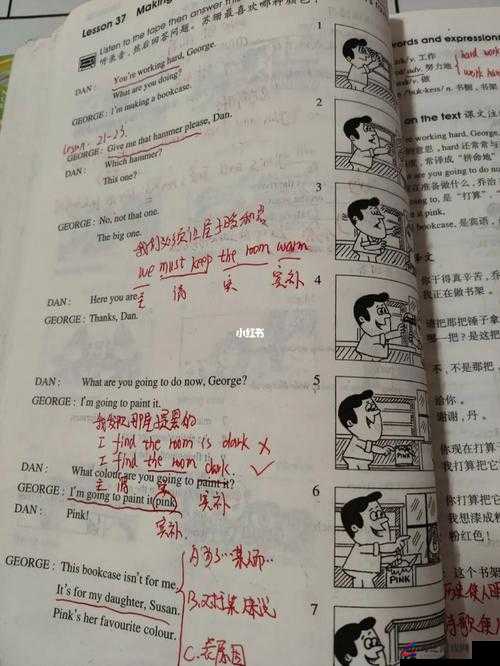 Lesson 37 Making
Listen to the tape then answer this
听录音，然后回答问题。苏珊最喜欢哪种颜色？
DAN: You're working hard, George.
What are you doing?
GEORGE: I'm making a bookcase.
1
Lesson 21-23.
GEORGE: Give me that hammer please, Dan.
DAN: Which hammer?
This one?
2
GEORGE: No, not that one.
The big one.
3
我们必须让房子暖和着
we must keep the room warm
主 谓 宾 宾补
DAN: Here you are.
GEORGE: Thanks, Dan.
4
小红书
DAN: What are you going to do now, George?
GEORGE: I'm going to paint it.
5
我发现那屋挺黑的
I find the room is dark ×
I find the room dark. ✓
主 谓 宾 宾补
DAN: What colour are you going to paint it?
GEORGE: I'm going to paint it pink
DAN: Pink!
宾补.
6
PINK
GEORGE: This bookcase isn't for me.
It's for my daughter, Susan.
Pink's her favourite colour.
7
A 为了…某人而…
B.对某某来说
C.表原因
words and expressions
工作
努力地
做
hard work
work hard
书橱，书架
on the text 课文注
working hard, George.
hard 还常常与
常译成“拼命地
are you going to do n
在准备做什么，乔治
going to, 是“打算”
pink.
bookcase, 是宾语，
译文
你干得真辛苦，乔
我正在做书架。
请把那把锤子拿
哪一把？是这把
不，不是那把，
给你。
谢谢，丹。
你现在打算
我打算把它
你打算把它
我想漆成粉
粉红色！
这个书架